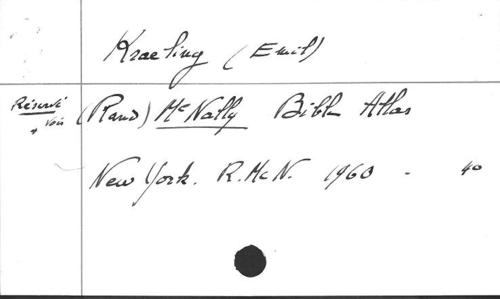 Kraeling (Emil)
Réservé (Rand) McNally Bible Atlas
+ voir
New York. R.McN. 1960 - 4o